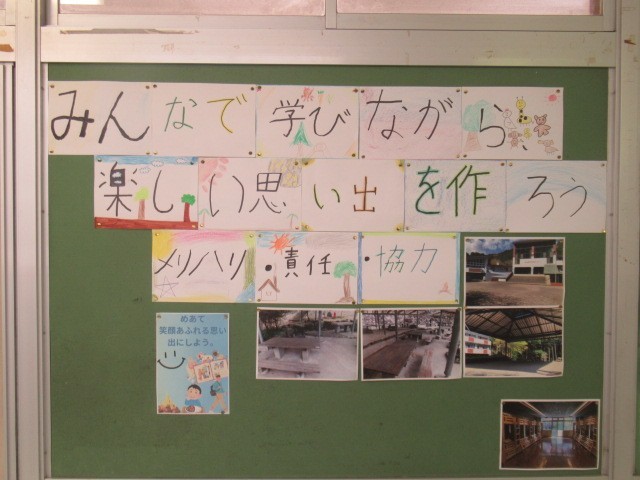 みんなで学びながら、
楽しい思い出を作ろう
メリハリ・責任・協力
めあて
笑顔あふれる思い
出にしよう。